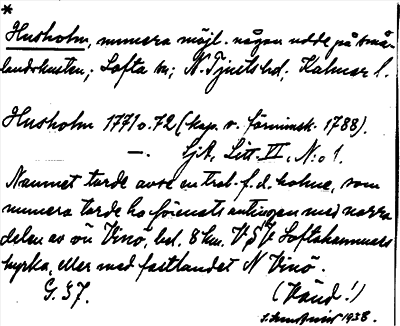 *
Husholm, numera möjl. någon udde på små-
landskusten; Lofta sn; N. Tjusts hd; Kalmar l.
Husholm 1771 o. 72 (kap. o. förminsk. 1788).
—. SjA, Litt. VI, N:o 1.
Namnet torde avse en trol. f.d. holme, som
numera torde ha förenats antingen med norra
delen av ön Vinö, bel. 8 km. VSV Loftahammars
kyrka, eller med fastlandet N Vinö.
G. 57. (Vänd!)
1938.